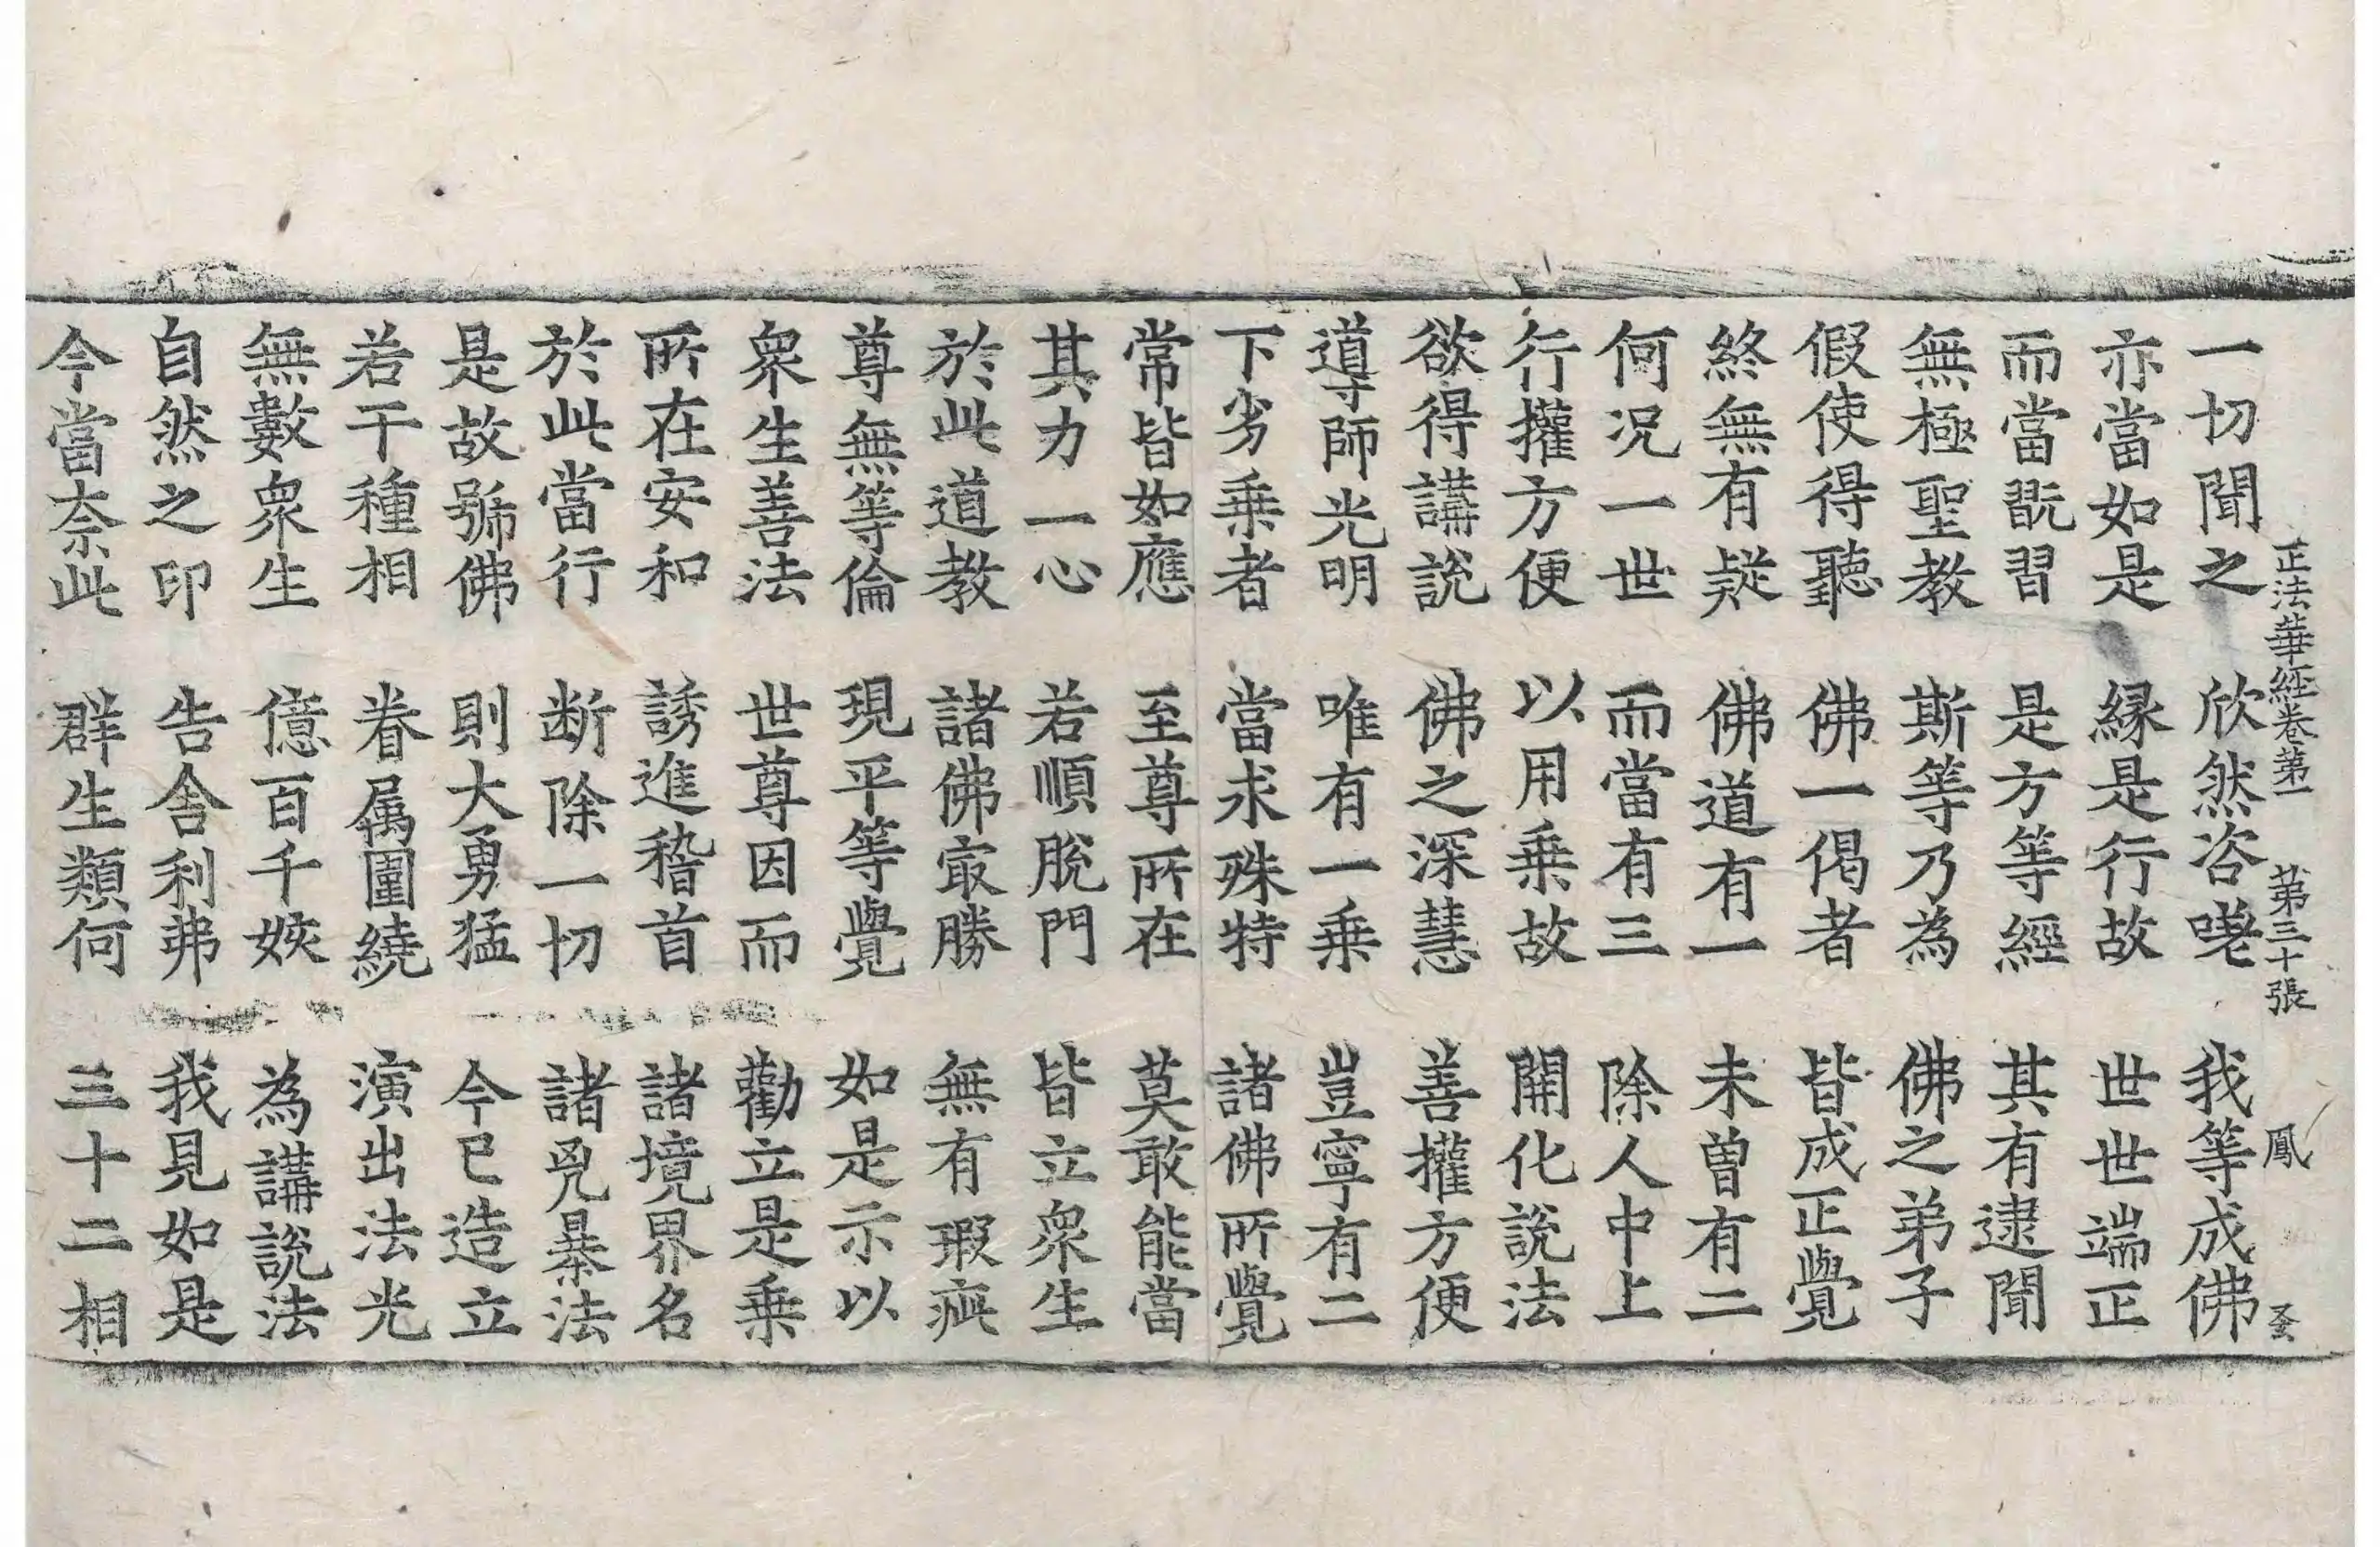 正法華經卷第一 第三十張 鳳 盃
一切聞之 欣然咨嗟 我等成佛
亦當如是 縁是行故 世世端正
而當翫習 是方等經 其有逮聞
無極聖教 斯等乃為 佛之弟子
假使得聽 佛一偈者 皆成正覺
終無有疑 佛道有一 未曽有二
何况一世 而當有三 除人中上
行攉方便 以用乗故 開化說法
欲得講說 佛之深慧 善攉方便
導師光明 唯有一乗 豈寧有二
下劣乗者 當求殊特 諸佛所覺
常皆如應 至尊所在 莫敢能當
其力一心 若順脫門 皆立衆生
於此道教 諸佛冣勝 無有瑕疵
尊無等倫 現平等覺 如是示以
衆生善法 世尊因而 勸立是乗
所在安和 誘進稽首 諸境界名
於此當行 断除一切 諸兇暴法
是故號佛 則大勇猛 今已造立
若干種相 眷属圍繞 演出法光
無數衆生 億百千姟 為講說法
自然之印 告舍利弗 我見如是
今當奈此 群生類何 三十二相